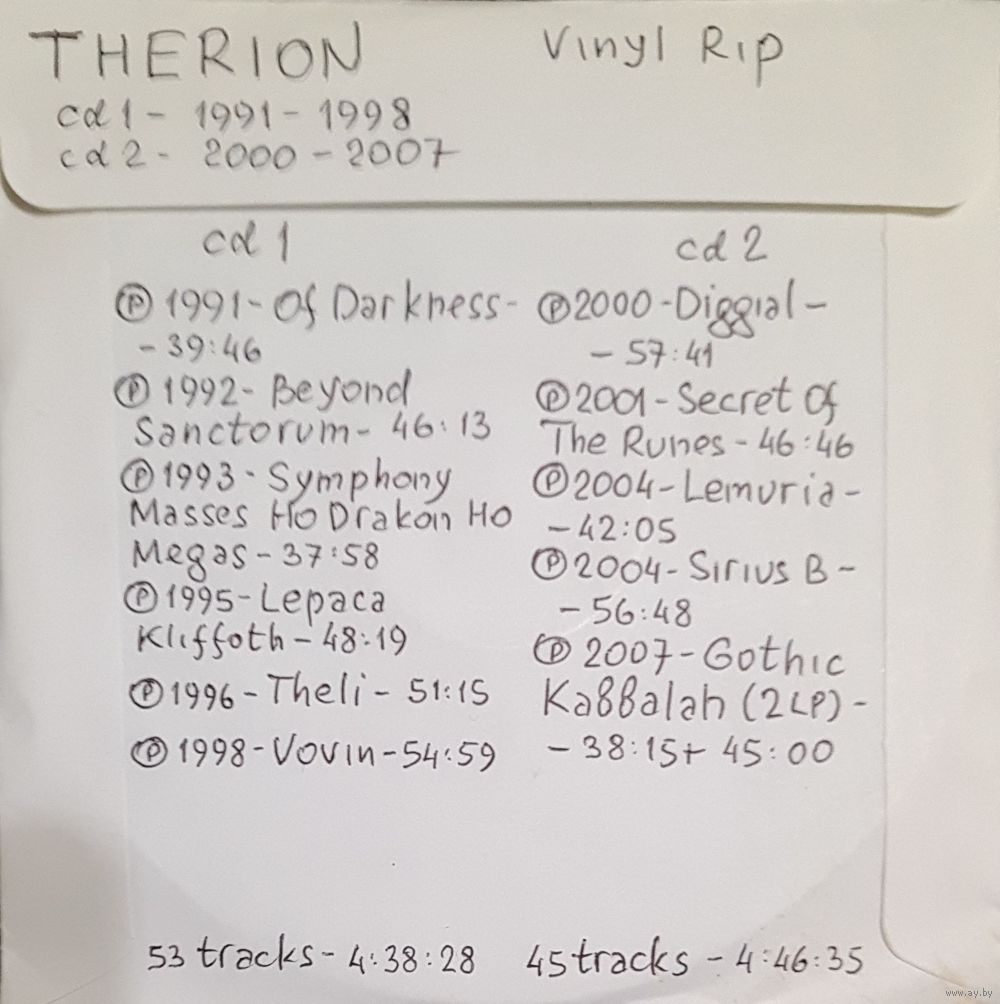 THERION Vinyl Rip
cd 1 - 1991 - 1998
cd 2 - 2000 - 2007
cd 1
Ⓟ 1991 - Of Darkness -
- 39:46
Ⓟ 1992 - Beyond
Sanctorum - 46:13
Ⓟ 1993 - Symphony
Masses Ho Drakon Ho
Megas - 37:58
Ⓟ 1995 - Lepaca
Kliffoth - 48:19
Ⓟ 1996 - Theli - 51:15
Ⓟ 1998 - Vovin - 54:59
53 tracks - 4:38:28
cd 2
Ⓟ 2000 - Diggial -
- 57:41
Ⓟ 2001 - Secret Of
The Runes - 46:46
Ⓟ 2004 - Lemuria -
- 42:05
Ⓟ 2004 - Sirius B -
- 56:48
Ⓟ 2007 - Gothic
Kabbalah (2LP) -
- 38:15 + 45:00
45 tracks - 4:46:35
www.ay.by